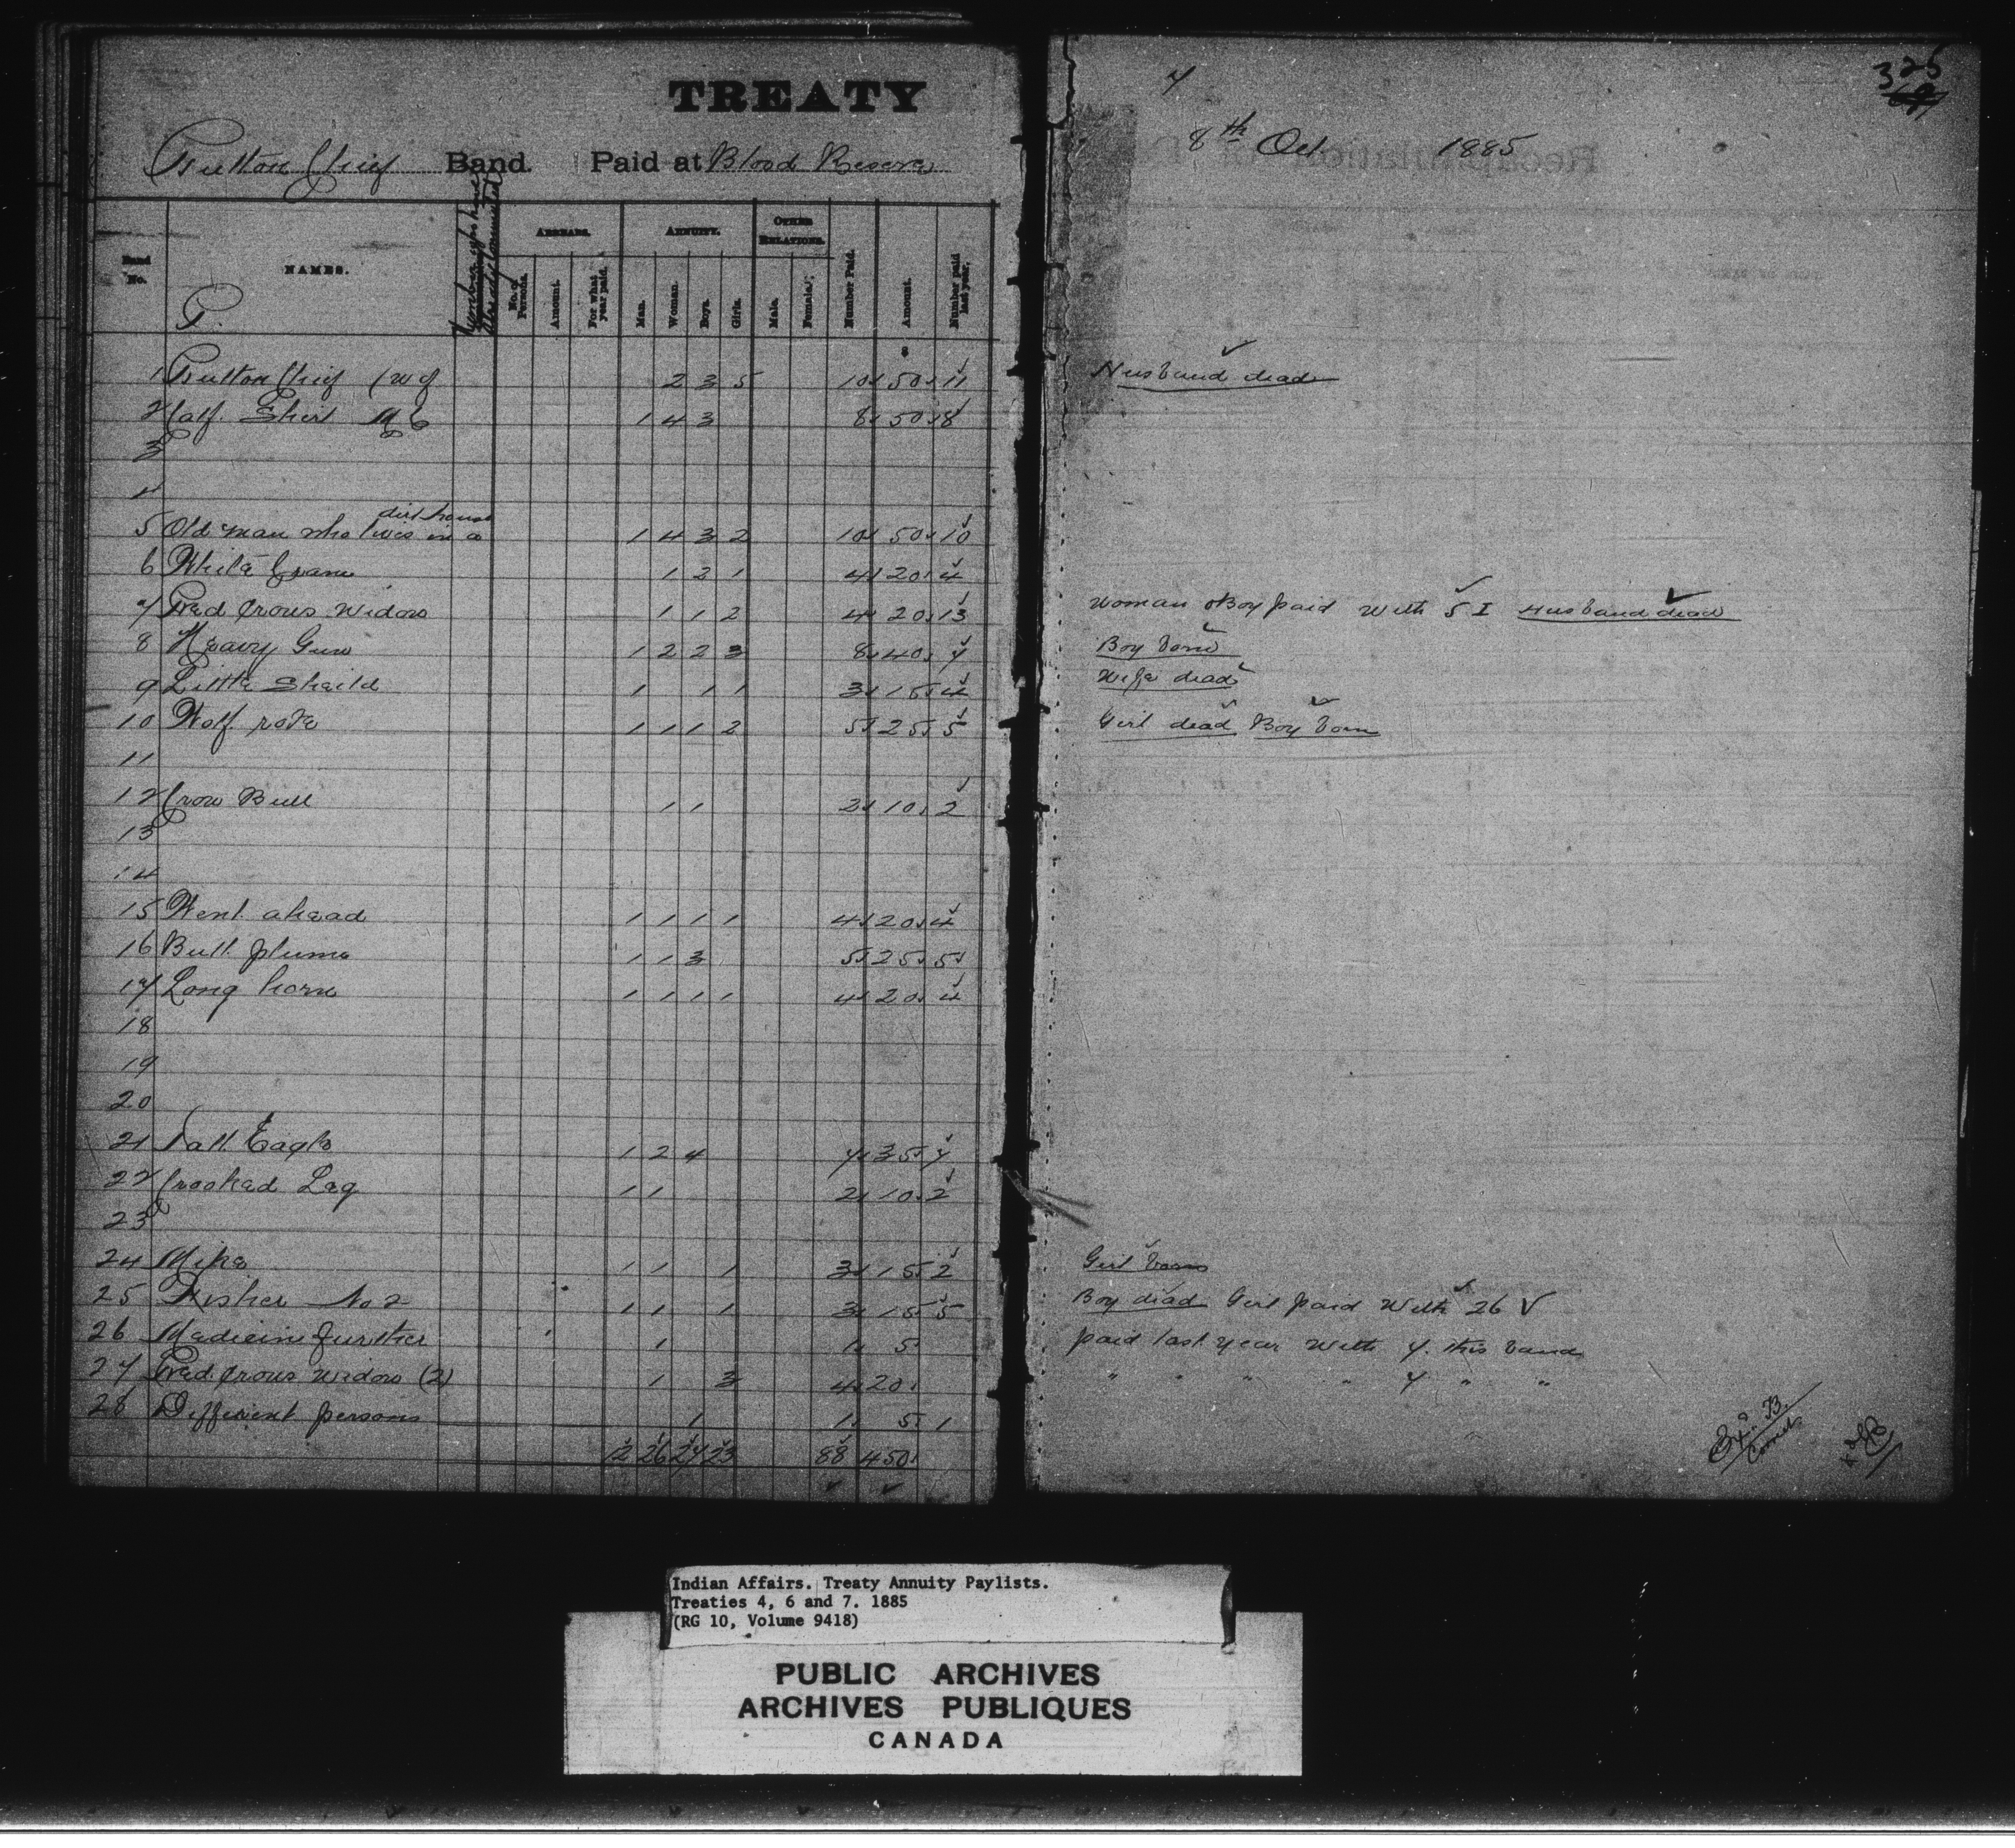 TREATY 7
325
Button Chief Band. Paid at Blood Reserve 8th Oct 1885
Band No. NAMES. ARREARS. ANNUITY. OTHER RELATIONS.
No. of Persons. Amount. For what year paid. Man. Woman. Boys. Girls. Male. Female. Number Paid. Amount. Number paid last year.
P.
$
1 Button Chief (wf 2 3 5 10 50 11 Husband dead
2 Calf Shirt M C 1 4 3 8 50 8
3
4
5 Old man who lives in a dirt house 1 4 3 2 10 50 10
6 White Crane 1 2 1 4 20 4
7 Red Crows Widow 1 1 2 4 20 13 Woman & Boy paid with 5 I Husband dead
8 Heavy Gun 1 2 2 3 8 40 7 Boy born
9 Little Sheild 1 1 1 3 15 4 Wife dead
10 Wolf robe 1 1 1 2 5 25 5 Girl dead Boy born
11
12 Crow Bull 1 1 2 10 2
13
14
15 Went ahead 1 1 1 1 4 20 4
16 Bull plume 1 1 3 5 25 5
17 Long horn 1 1 1 1 4 20 4
18
19
20
21 Tall Eagle 1 2 4 7 35 7
22 Crooked Leg 1 1 2 10 2
23
24 Mike 1 1 1 3 15 2 Girl born
25 Fisher No 2 1 1 1 3 15 5 Boy dead Girl paid with 26
26 Medicine further 1 1 5 paid last year with 7 this band
27 Red Crows Widow (2) 1 3 4 20 " " " " 7 " "
28 Different persons 1 1 5 1
12 26 27 23 88 450
Indian Affairs. Treaty Annuity Paylists.
Treaties 4, 6 and 7. 1885
(RG 10, Volume 9418)
PUBLIC ARCHIVES
ARCHIVES PUBLIQUES
CANADA